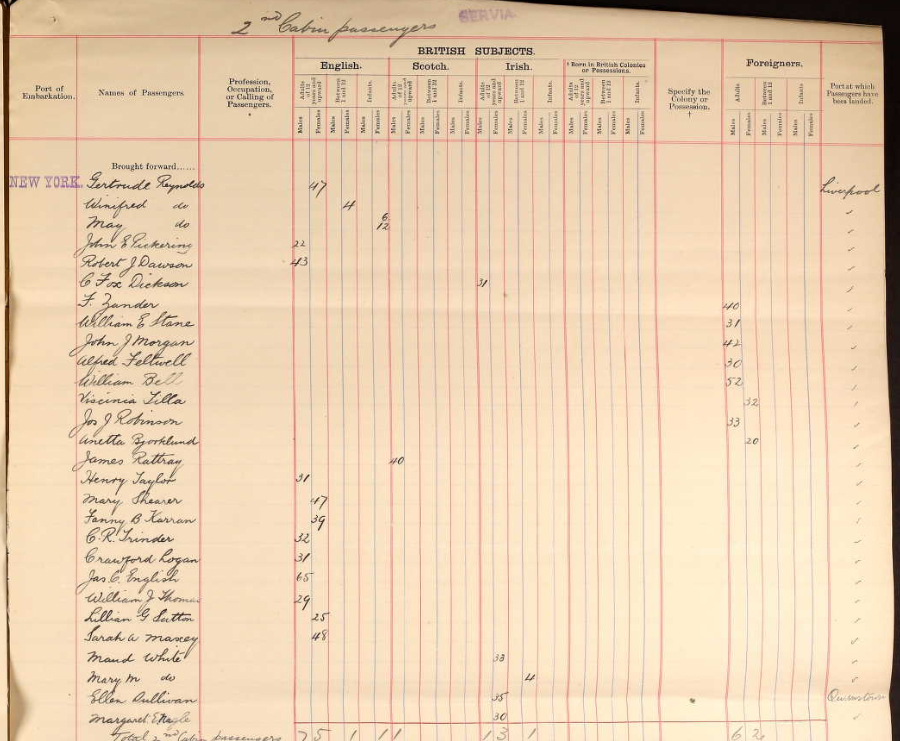 2nd Cabin passengers SERVIA
BRITISH SUBJECTS.
English. Scotch. Irish. * Born in British Colonies or Possessions. Foreigners.
Port of Embarkation. Names of Passengers Profession, Occupation, or Calling of Passengers. * Adults of 12 years and upward Between 1 and 12 Infants. Adults of 12 years and upward Between 1 and 12 Infants. Adults of 12 years and upward Between 1 and 12 Infants. Adults of 12 years and upward Between 1 and 12 Infants. Specify the Colony or Possession. † Adults Between 1 and 12 Infants Port at which Passengers have been landed.
Males Females Males Females Males Females Males Females Males Females Males Females Males Females Males Females Males Females Males Females Males Females Males Females Males Females Males Females Males Females
Brought forward......
NEW YORK. Gertrude Reynolds 47 Liverpool
Winifred do 4 "
May do 6/12 "
John E Pickering 22 "
Robert J Dawson 43 "
C Fox Dickson 31 "
F. Zander 40 "
William E Stane 31 "
John J Morgan 42 "
Alfred Feltwell 30 "
William Bell 52 "
Viscinia Tilla 32 "
Jos J Robinson 33 "
Anetta Bjorklund 20 "
James Rattray 40 "
Henry Taylor 31 "
Mary Shearer 47 "
Fanny B Karran 39 "
C.R. Trinder 32 "
Crawford Logan 31 "
Jas. C. English 65 "
William J Thomas 29 "
Lillian G Sutton 25 "
Sarah A Maxey 48 "
Maud White 33 "
Mary M do 4 "
Ellen Sullivan 35 Queenstown
Margaret E Nagle 30 "
Total 2nd Cabin passengers 7 5 1 1 1 1 3 1 6 2